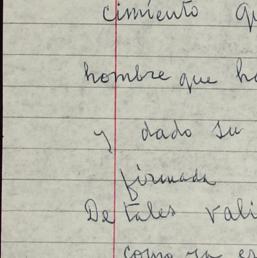 cimiento q
hombre que ha
y dado su
firmada
De tales vali
como ya es